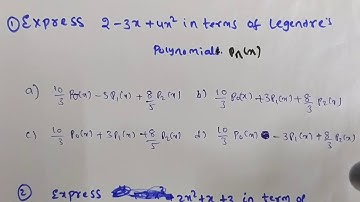 ① Express 2-3x+4x² in terms of Legendre's
Polynomials. Pₙ(x)
a) 10/3 P₀(x) - 3P₁(x) + 8/5 P₂(x) b) 10/3 P₀(x) + 3P₁(x) + 8/3 P₂(x)
c) 10/3 P₀(x) + 3P₁(x) + 8/5 P₂(x) d) 10/3 P₀(x) - 3P₁(x) + 8/3 P₂(x)
② Express 2x²+x+3 in terms of